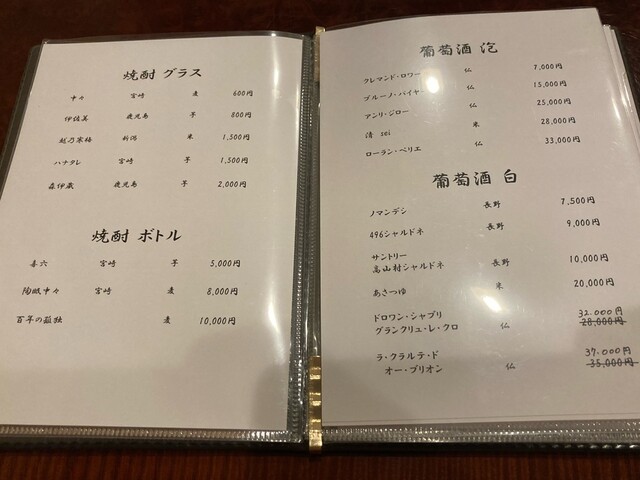 焼酎 グラス
中々 宮崎 麦 600円
伊佐美 鹿児島 芋 800円
越乃寒梅 新潟 米 1,500円
ハナタレ 宮崎 芋 1,500円
森伊蔵 鹿児島 芋 2,000円
焼酎 ボトル
喜六 宮崎 芋 5,000円
陶眠中々 宮崎 麦 8,000円
百年の孤独 麦 10,000円
葡萄酒 泡
クレマンド・ロワー 仏 7,000円
ブルーノ・パイヤー 仏 15,000円
アンリ・ジロー 仏 25,000円
清 sei 米 28,000円
ローラン・ペリエ 仏 33,000円
葡萄酒 白
ノマンデシ 長野 7,500円
496シャルドネ 長野 9,000円
サントリー
高山村シャルドネ 長野 10,000円
あさつゆ 米 20,000円
ドロワン・シャブリ 32.000円
グランクリュ・レ・クロ 仏 28,000円
ラ・クラルテ・ド 37.000円
オー・ブリオン 仏 35,000円